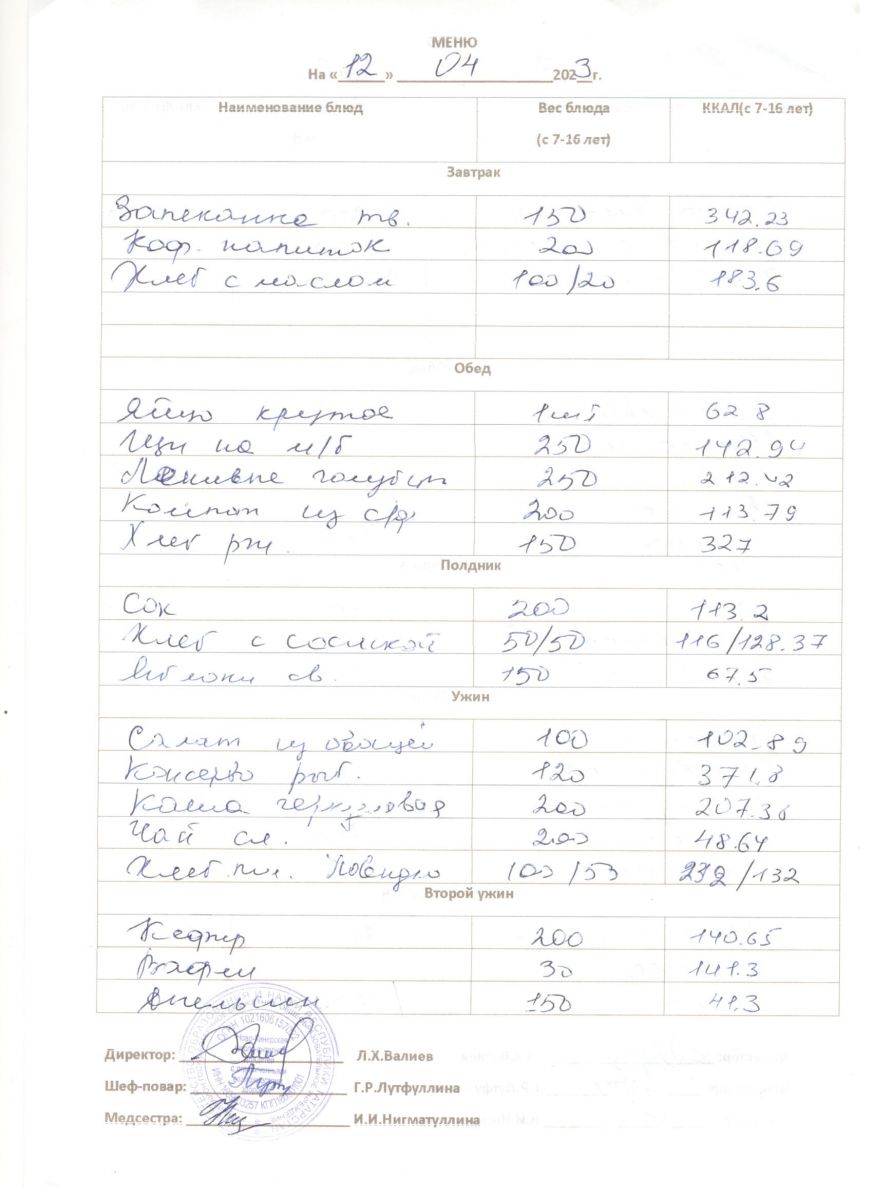 МЕНЮ
На « 12 » 04 2023 г.
Наименование блюд Вес блюда (с 7-16 лет) ККАЛ(с 7-16 лет)
Завтрак
Запеканка тв. 150 342.23
Коф. напиток 200 118.69
Хлеб с маслом 100/20 183.6
Обед
Яйцо крутое 1шт 62 8
Щи на м/б 250 142.94
Ленивые голубцы 250 212.42
Компот из с/ф 200 113.79
Хлеб рж. 150 327
Полдник
Сок 200 113.2
Хлеб с сосиской 50/50 116/128.37
Яблоки св. 150 67.5
Ужин
Салат из овощей 100 102.89
Консерво рыб. 120 371,8
Каша геркулесовая 200 207.38
Чай сл. 200 48.64
Хлеб пш. Повидло 100/53 /132
Второй ужин
Кефир 200 140.65
Вафли 30 141.3
Апельсин 150 41,3
Директор: Л.Х.Валиев
Шеф-повар: Г.Р.Лутфуллина
Медсестра: И.И.Нигматуллина